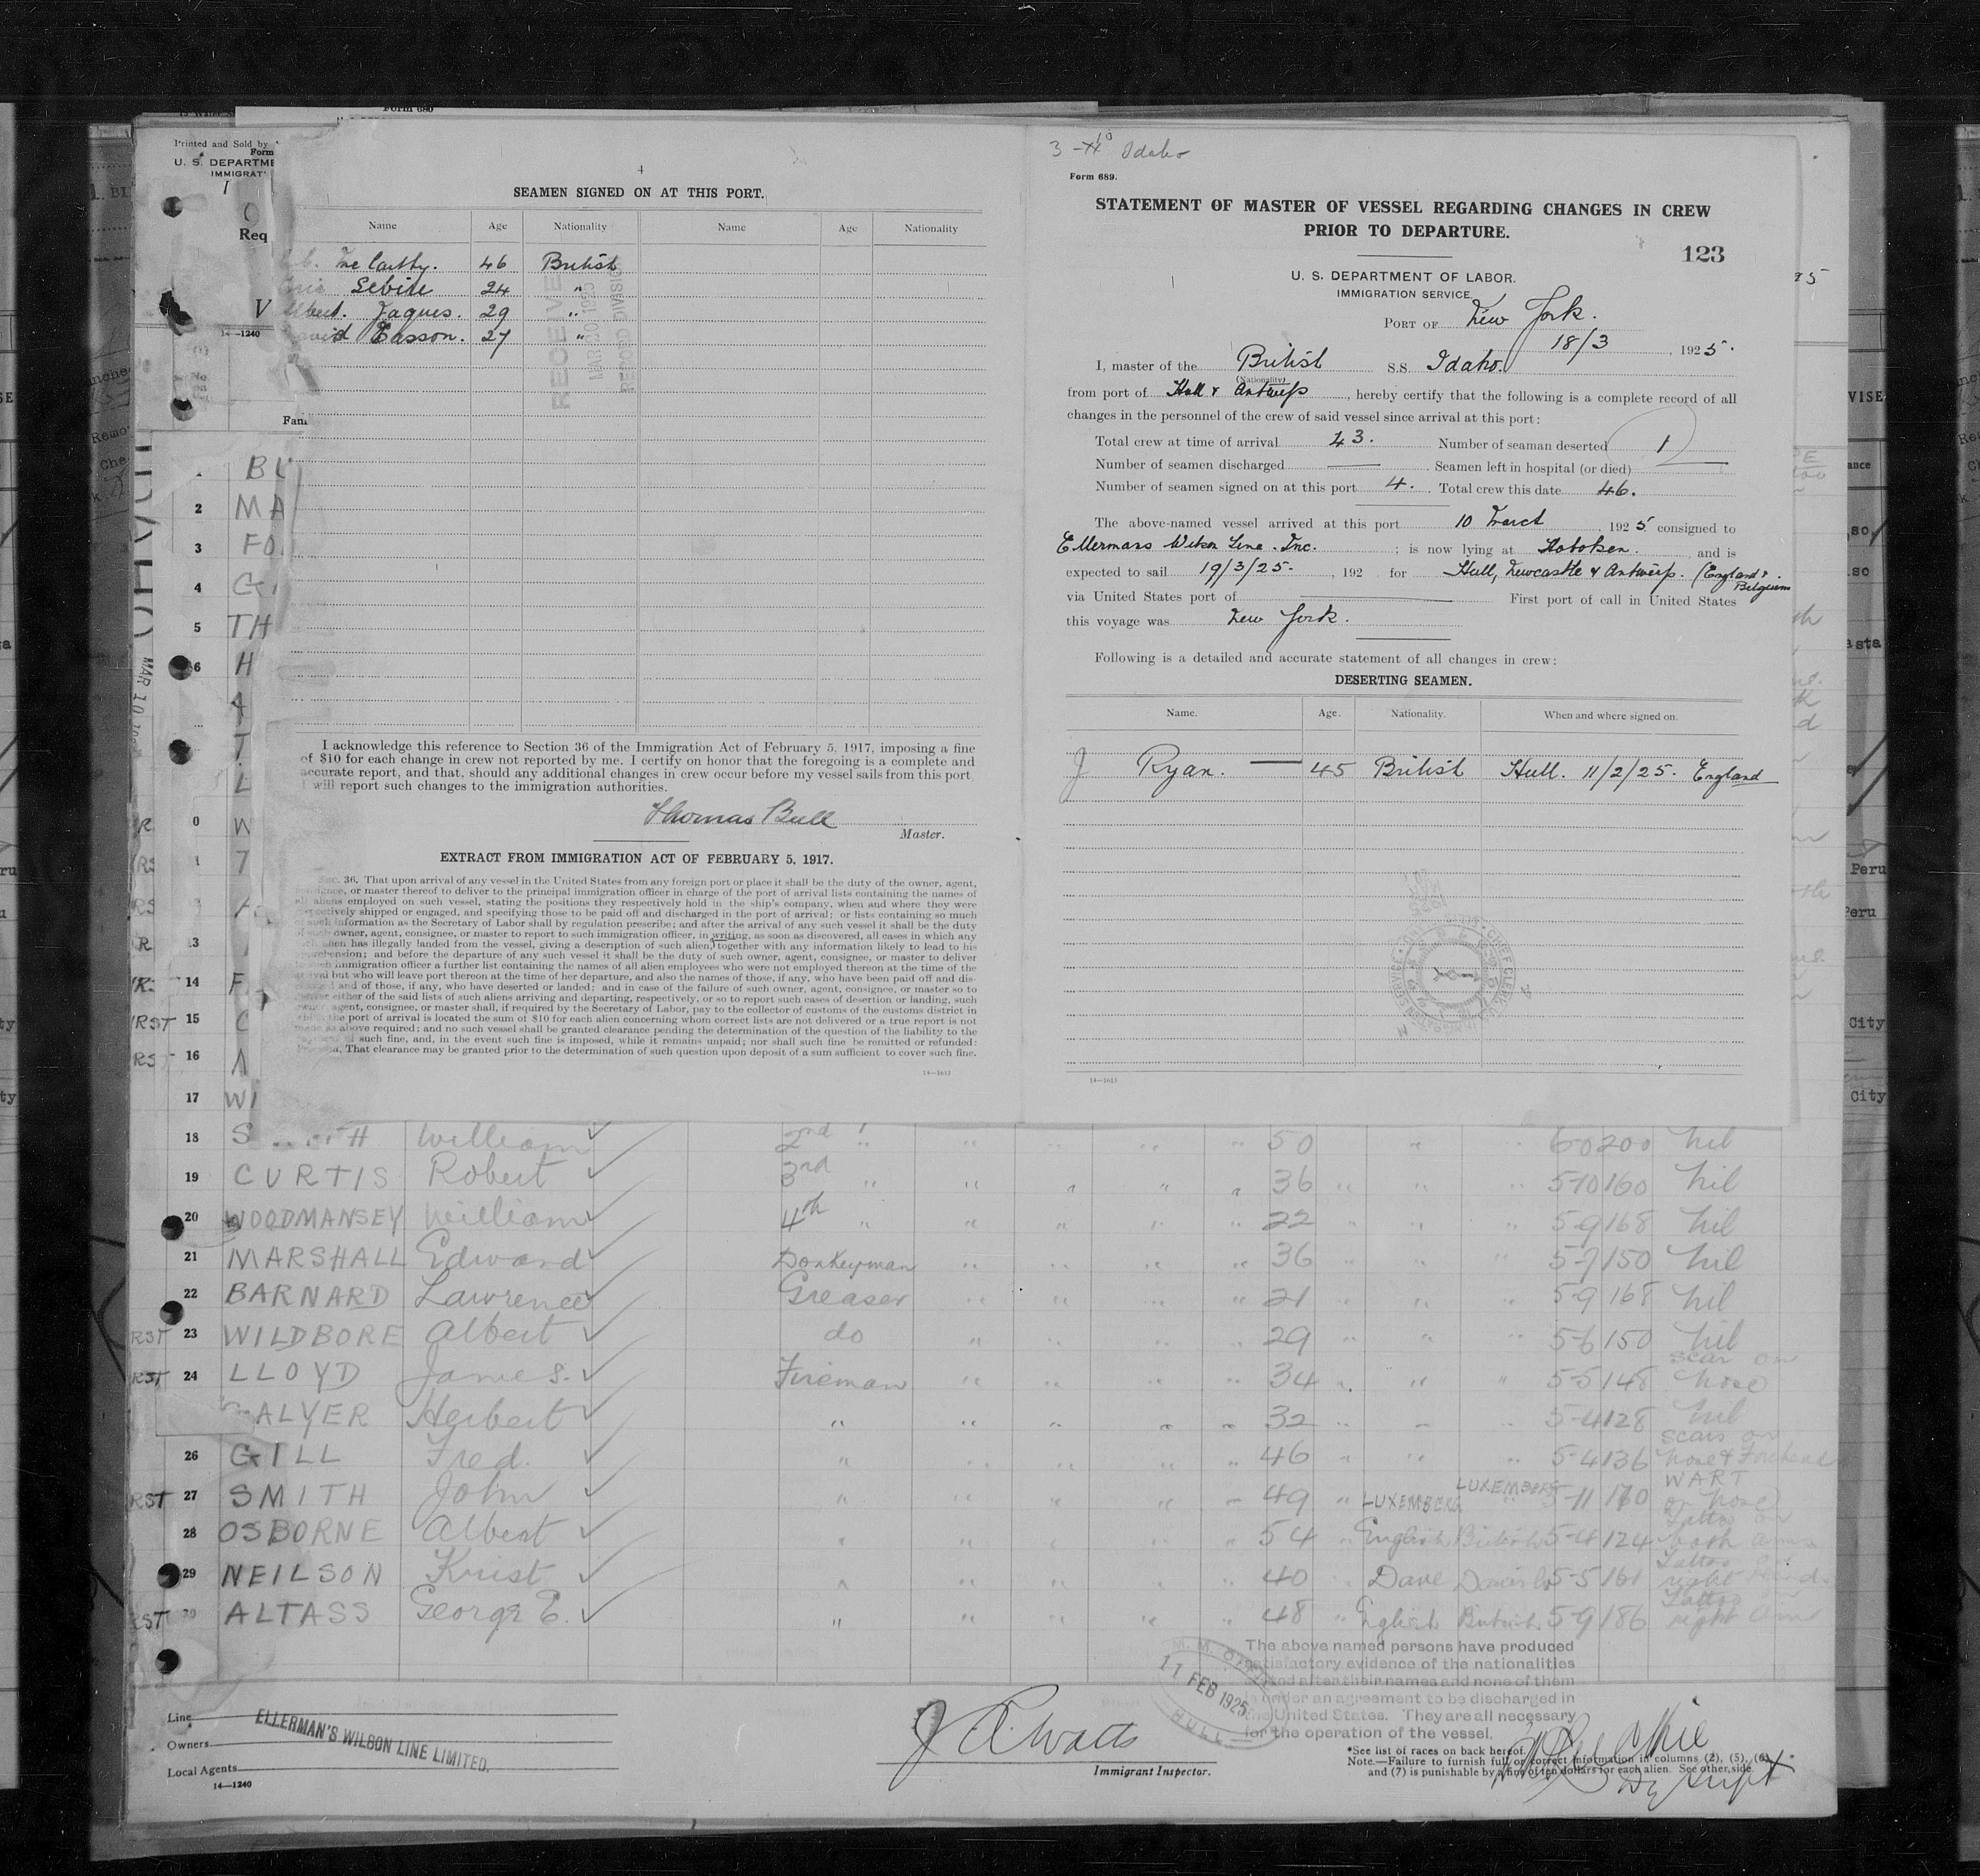 Form 680
Printed and Sold by
Form
U. S. DEPARTME
IMMIGRAT
Req
V
14—1240
4
SEAMEN SIGNED ON AT THIS PORT.
Name Age Nationality Name Age Nationality
McCarthy. 46 British
24 "
Jaques. 29 "
Easson. 27 "
RECEIVE
MAR 20 1925
RECORD DIVISION
Fam
I acknowledge this reference to Section 36 of the Immigration Act of February 5, 1917, imposing a fine
of $10 for each change in crew not reported by me. I certify on honor that the foregoing is a complete and
accurate report, and that, should any additional changes in crew occur before my vessel sails from this port
I will report such changes to the immigration authorities.
Thomas Bull
Master.
EXTRACT FROM IMMIGRATION ACT OF FEBRUARY 5, 1917.
Sec. 36. That upon arrival of any vessel in the United States from any foreign port or place it shall be the duty of the owner, agent,
consignee, or master thereof to deliver to the principal immigration officer in charge of the port of arrival lists containing the names of
all aliens employed on such vessel, stating the positions they respectively hold in the ship's company, when and where they were
respectively shipped or engaged, and specifying those to be paid off and discharged in the port of arrival; or lists containing so much
of such information as the Secretary of Labor shall by regulation prescribe; and after the arrival of any such vessel it shall be the duty
of such owner, agent, consignee, or master to report to such immigration officer, in writing, as soon as discovered, all cases in which any
such alien has illegally landed from the vessel, giving a description of such alien, together with any information likely to lead to his
apprehension; and before the departure of any such vessel it shall be the duty of such owner, agent, consignee, or master to deliver
to such immigration officer a further list containing the names of all alien employees who were not employed thereon at the time of the
arrival but who will leave port thereon at the time of her departure, and also the names of those, if any, who have been paid off and dis-
charged and of those, if any, who have deserted or landed; and in case of the failure of such owner, agent, consignee, or master so to
deliver either of the said lists of such aliens arriving and departing, respectively, or so to report such cases of desertion or landing, such
owner, agent, consignee, or master shall, if required by the Secretary of Labor, pay to the collector of customs of the customs district in
which the port of arrival is located the sum of $10 for each alien concerning whom correct lists are not delivered or a true report is not
made as above required; and no such vessel shall be granted clearance pending the determination of the question of the liability to the
payment of such fine, and, in the event such fine is imposed, while it remains unpaid; nor shall such fine be remitted or refunded:
Provided, That clearance may be granted prior to the determination of such question upon deposit of a sum sufficient to cover such fine.
14—1613
3 - 10 Idaho
Form 689.
STATEMENT OF MASTER OF VESSEL REGARDING CHANGES IN CREW
PRIOR TO DEPARTURE.
123
U. S. DEPARTMENT OF LABOR.
IMMIGRATION SERVICE
PORT OF New York.
18/3, 1925.
I, master of the British S.S. Idaho.
(Nationality)
from port of Hull & Antwerp, hereby certify that the following is a complete record of all
changes in the personnel of the crew of said vessel since arrival at this port:
Total crew at time of arrival 43. Number of seaman deserted 1
Number of seamen discharged — . Seamen left in hospital (or died) —
Number of seamen signed on at this port 4. Total crew this date 46.
The above-named vessel arrived at this port 10 March, 1925 consigned to
Ellermans Wilson Line. Inc. ; is now lying at Hoboken. and is
expected to sail 19/3/25., 192 for Hull, Newcastle & Antwerp. (England & Belgium
via United States port of — First port of call in United States
this voyage was New York.
Following is a detailed and accurate statement of all changes in crew:
DESERTING SEAMEN.
Name. Age. Nationality. When and where signed on.
J Ryan. — 45 British Hull. 11/2/25. England
14—1613
MAR 10
2 MA
3 FO
4 G
5 TH
6 H
14 F
RST 15 C
RST 16
17 WI
18 William 2nd " " " " " 50 " " 60 200 nil
19 CURTIS Robert 3rd " " " " " 36 " " " 5-10 160 nil
20 WOODMANSEY William 4th " " " " " 22 " " " 5-9 168 nil
21 MARSHALL Edward Donkeyman " " " " 36 " " " 5-7 150 nil
22 BARNARD Lawrence Greaser " " " " 21 " " " 5-9 168 nil
RST 23 WILDBORE Albert do " " " " 29 " " " 5-6 150 nil
RST 24 LLOYD James. Fireman " " " " 34 " " " 5-5 148 scar on nose
ALYER Herbert " " " " " 32 " " " 5-4 128 nil
26 GILL Fred. " " " " " 46 " " " 5-4 136 scars on nose & Forehead
RST 27 SMITH John " " " " " 49 " LUXEMBERG LUXEMBERG 5-11 170 WART on nose
28 OSBORNE Albert " " " " " 54 " English British 5-4 124 Tattoo on both arms
29 NEILSON Krist " " " " " 40 Dane Danish 5-5 161 Tattoo right
RST 30 ALTASS George E. " " " " " 48 " English British 5-9 186 Tattoo right arm
The above named persons have produced
satisfactory evidence of the nationalities
stated after their names and none of them
is under an agreement to be discharged in
the United States. They are all necessary
for the operation of the vessel.
M. M. OFFICE
11 FEB 1925
HULL
Line
ELLERMAN'S WILSON LINE LIMITED.
Owners
Local Agents
14—1240
J A Watts
Immigrant Inspector.
*See list of races on back hereof.
Note.—Failure to furnish full or correct information in columns (2), (5), (6)
and (7) is punishable by a fine of ten dollars for each alien. See other side.
Dy Supt
Peru
Peru
City
City